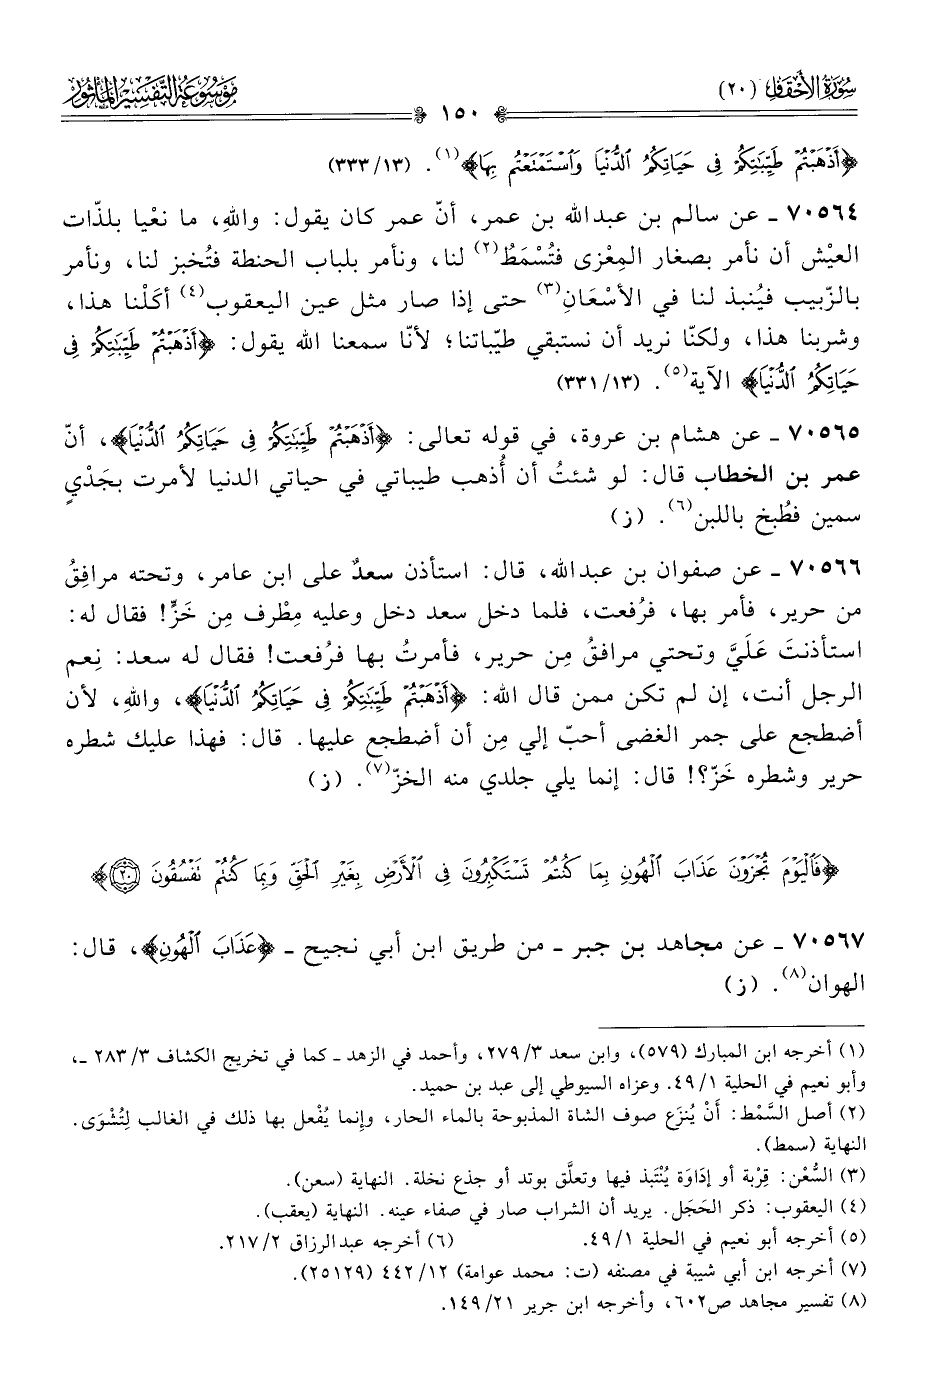 سُورَةُ الأَحْقَافِ (٢٠)
١٥٠
مَوْسُوعَةُ التَّفْسِيرِ المَأْثُورِ
﴿أَذْهَبْتُمْ طَيِّبَاتِكُمْ فِي حَيَاتِكُمُ الدُّنْيَا وَاسْتَمْتَعْتُم بِهَا﴾(١). (١٣/٣٣٣)
٧٠٥٦٤ ـ عن سالم بن عبدالله بن عمر، أنّ عمر كان يقول: واللهِ، ما نعْيا بلذّات
العيْش أن نأمر بصغار المِعْزى فتُسْمَطُ(٢) لنا، ونأمر بلباب الحنطة فتُخبز لنا، ونأمر
بالزّبيب فيُنبذ لنا في الأسْعَانِ(٣) حتى إذا صار مثل عين اليعقوب(٤) أكلْنا هذا،
وشربنا هذا، ولكنّا نريد أن نستبقي طيّباتنا؛ لأنّا سمعنا الله يقول: ﴿أَذْهَبْتُمْ طَيِّبَاتِكُمْ فِي
حَيَاتِكُمُ الدُّنْيَا﴾ الآية(٥). (١٣/٣٣١)
٧٠٥٦٥ ـ عن هشام بن عروة، في قوله تعالى: ﴿أَذْهَبْتُمْ طَيِّبَاتِكُمْ فِي حَيَاتِكُمُ الدُّنْيَا﴾، أنّ
عمر بن الخطاب قال: لو شئتُ أن أُذهب طيباتي في حياتي الدنيا لأمرت بجَدْيٍ
سمين فطُبخ باللبن(٦). (ز)
٧٠٥٦٦ ـ عن صفوان بن عبدالله، قال: استأذن سعدٌ على ابن عامر، وتحته مرافِقُ
من حرير، فأمر بها، فرُفعت، فلما دخل سعد دخل وعليه مِطْرف مِن خَزٍّ! فقال له:
استأذنتَ عَلَيَّ وتحتي مرافقُ مِن حرير، فأمرتُ بها فرُفعت! فقال له سعد: نِعم
الرجل أنت، إن لم تكن ممن قال الله: ﴿أَذْهَبْتُمْ طَيِّبَاتِكُمْ فِي حَيَاتِكُمُ الدُّنْيَا﴾، واللهِ، لأن
أضطجع على جمر الغضى أحبّ إلي مِن أن أضطجع عليها. قال: فهذا عليك شطره
حرير وشطره خَزّ؟! قال: إنما يلي جلدي منه الخزّ(٧). (ز)
﴿فَالْيَوْمَ تُجْزَوْنَ عَذَابَ الْهُونِ بِمَا كُنتُمْ تَسْتَكْبِرُونَ فِي الْأَرْضِ بِغَيْرِ الْحَقِّ وَبِمَا كُنتُمْ تَفْسُقُونَ ٢٠﴾
٧٠٥٦٧ ـ عن مجاهد بن جبر ـ من طريق ابن أبي نجيح ـ ﴿عَذَابَ الْهُونِ﴾، قال:
الهوان(٨). (ز)
(١) أخرجه ابن المبارك (٥٧٩)، وابن سعد ٣/ ٢٧٩، وأحمد في الزهد ـ كما في تخريج الكشاف ٣/ ٢٨٣ ـ،
وأبو نعيم في الحلية ١/ ٤٩. وعزاه السيوطي إلى عبد بن حميد.
(٢) أصل السَّمْط: أَنْ يُنزَع صوف الشاة المذبوحة بالماء الحار، وإنما يُفْعل بها ذلك في الغالب لِتُشْوَى.
النهاية (سمط).
(٣) السُّعْن: قِرْبة أو إدَاوَة يُنْتَبذ فيها وتعلَّق بوتد أو جذع نخلة. النهاية (سعن).
(٤) اليعقوب: ذكر الحَجَل. يريد أن الشراب صار في صفاء عينه. النهاية (يعقب).
(٥) أخرجه أبو نعيم في الحلية ١/ ٤٩. (٦) أخرجه عبدالرزاق ٢/ ٢١٧.
(٧) أخرجه ابن أبي شيبة في مصنفه (ت: محمد عوامة) ١٢/ ٤٤٢ (٢٥١٢٩).
(٨) تفسير مجاهد ص٦٠٢، وأخرجه ابن جرير ٢١/ ١٤٩.